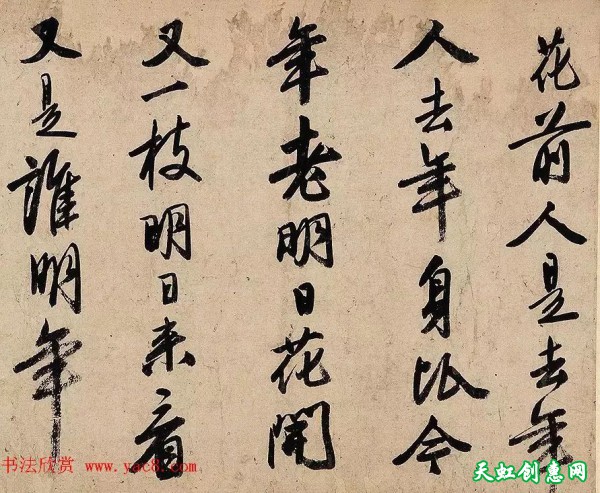 花前人是去年
人去年身比今
年老明日花開
又一枝明日来看
又是誰明年
书法欣赏 www.yac8.com
天虹创意网